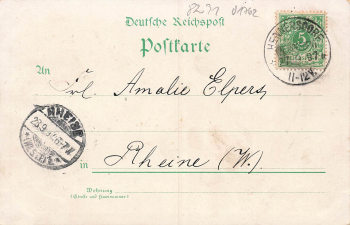 8231 01762
Deutsche Reichspost
Postkarte
5
11-12V.
An
Frl. Amalie Elpers,
RHEINE
23.9.97
in
Rheine (W.)
Wohnung
(Straße und Hausnummer)